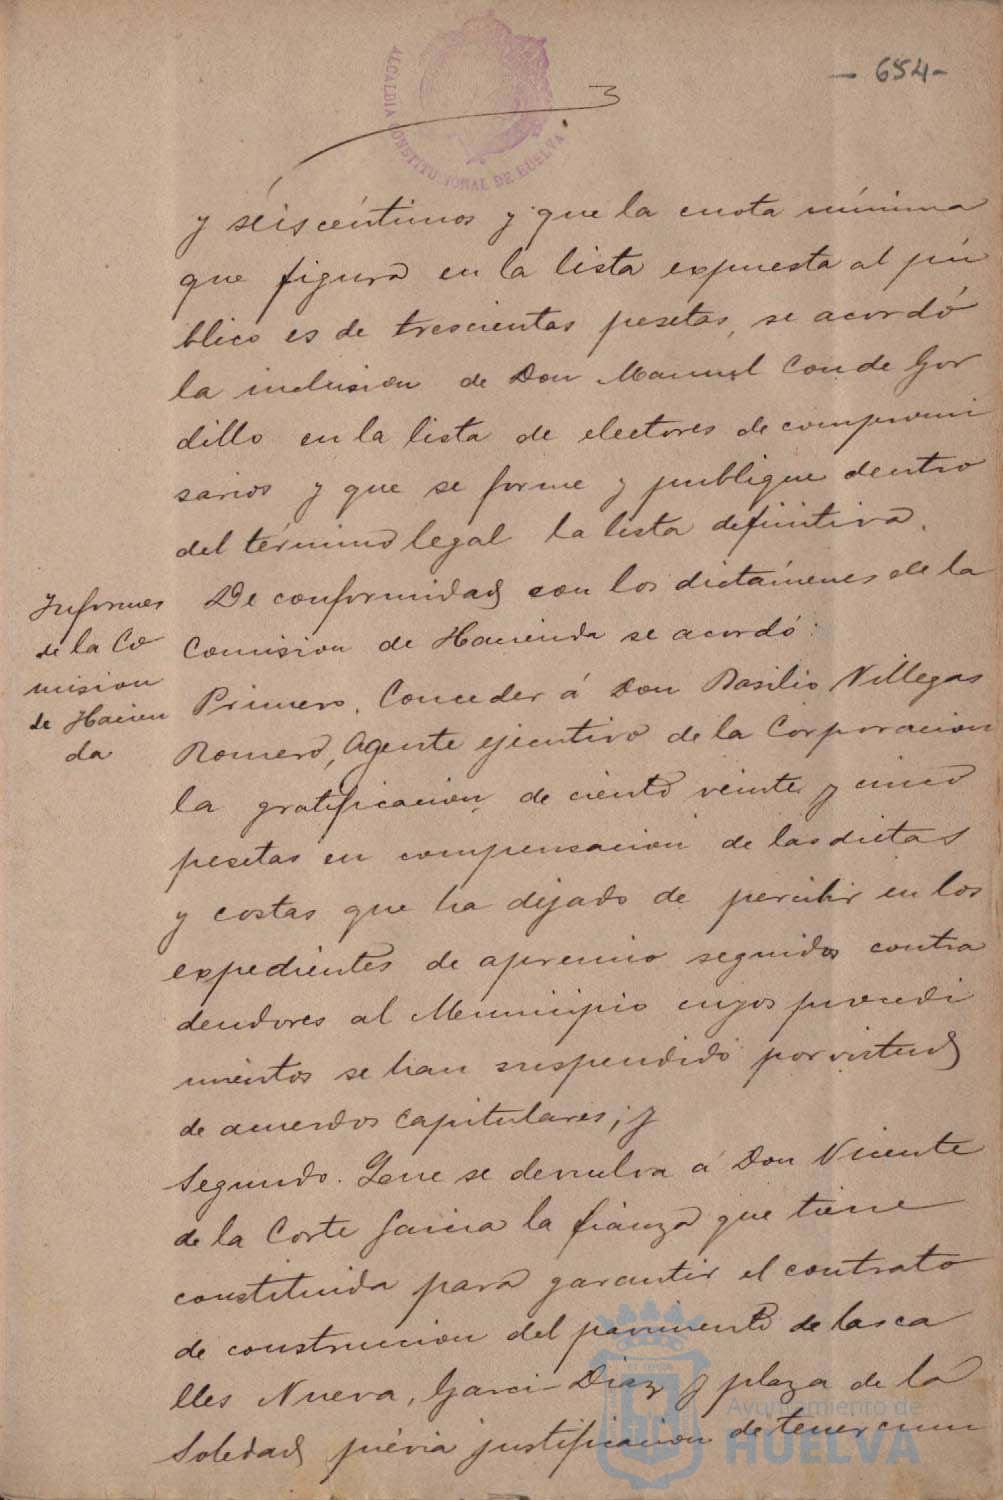 - 654 -
3
ALCALDIA CONSTITUCIONAL DE HUELVA
y seis céntimos y que la cuota mínima
que figura en la lista expuesta al pú
blico es de trescientas pesetas, se acordó
la inclusion de Don Manuel Conde Gor
dillo en la lista de electores de compromi
sarios y que se forme y publique dentro
del término legal la lista definitiva.
Informes
de la Co
mision
de Hacien
da
De conformidad con los dictámenes de la
Comision de Hacienda se acordó:
Primero. Conceder á Don Basilio Villegas
Romero, Agente ejecutivo de la Corporacion
la gratificacion de ciento veinte y cinco
pesetas en compensacion de las dietas
y costas que ha dejado de percibir en los
expedientes de apremio seguidos contra
deudores al Municipio cuyos procedi
mientos se han suspendido por virtud
de acuerdos capitulares; y
Segundo. Que se devuelva á Don Vicente
de la Corte García la fianza que tiene
constituida para garantir el contrato
de construccion del pavimento de las ca
lles Nueva, Garci-Diaz y plaza de la
Soledad prévia justificacion de tener cum
Ayuntamiento de
HUELVA